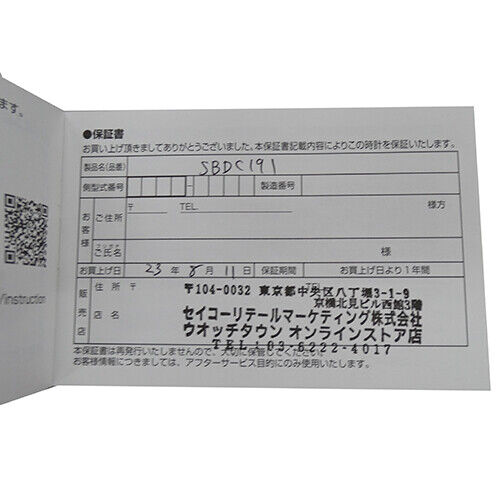 ます。
/instruction
●保証書
お買い上げ頂きましてありがとうございました。本保証書記載内容によりこの時計を保証いたします。
製品名(品番) SBDC191
側型式番号 - 製造番号
お客様 ご住所 〒 TEL. 様方
フリガナ
ご氏名 様
お買上げ日 23年 8月 11日 保証期間 お買上げ日より1年間
販売店 住所 〒104-0032 東京都中央区八丁堀3-1-9
京橋北見ビル西館3階
店名 セイコーリテールマーケティング株式会社
ウオッチタウン オンラインストア店
TEL:03-6222-4017
本保証書は再発行いたしませんので、大切に保管してください。
お客様情報につきましては、アフターサービス目的にのみ使用いたします。